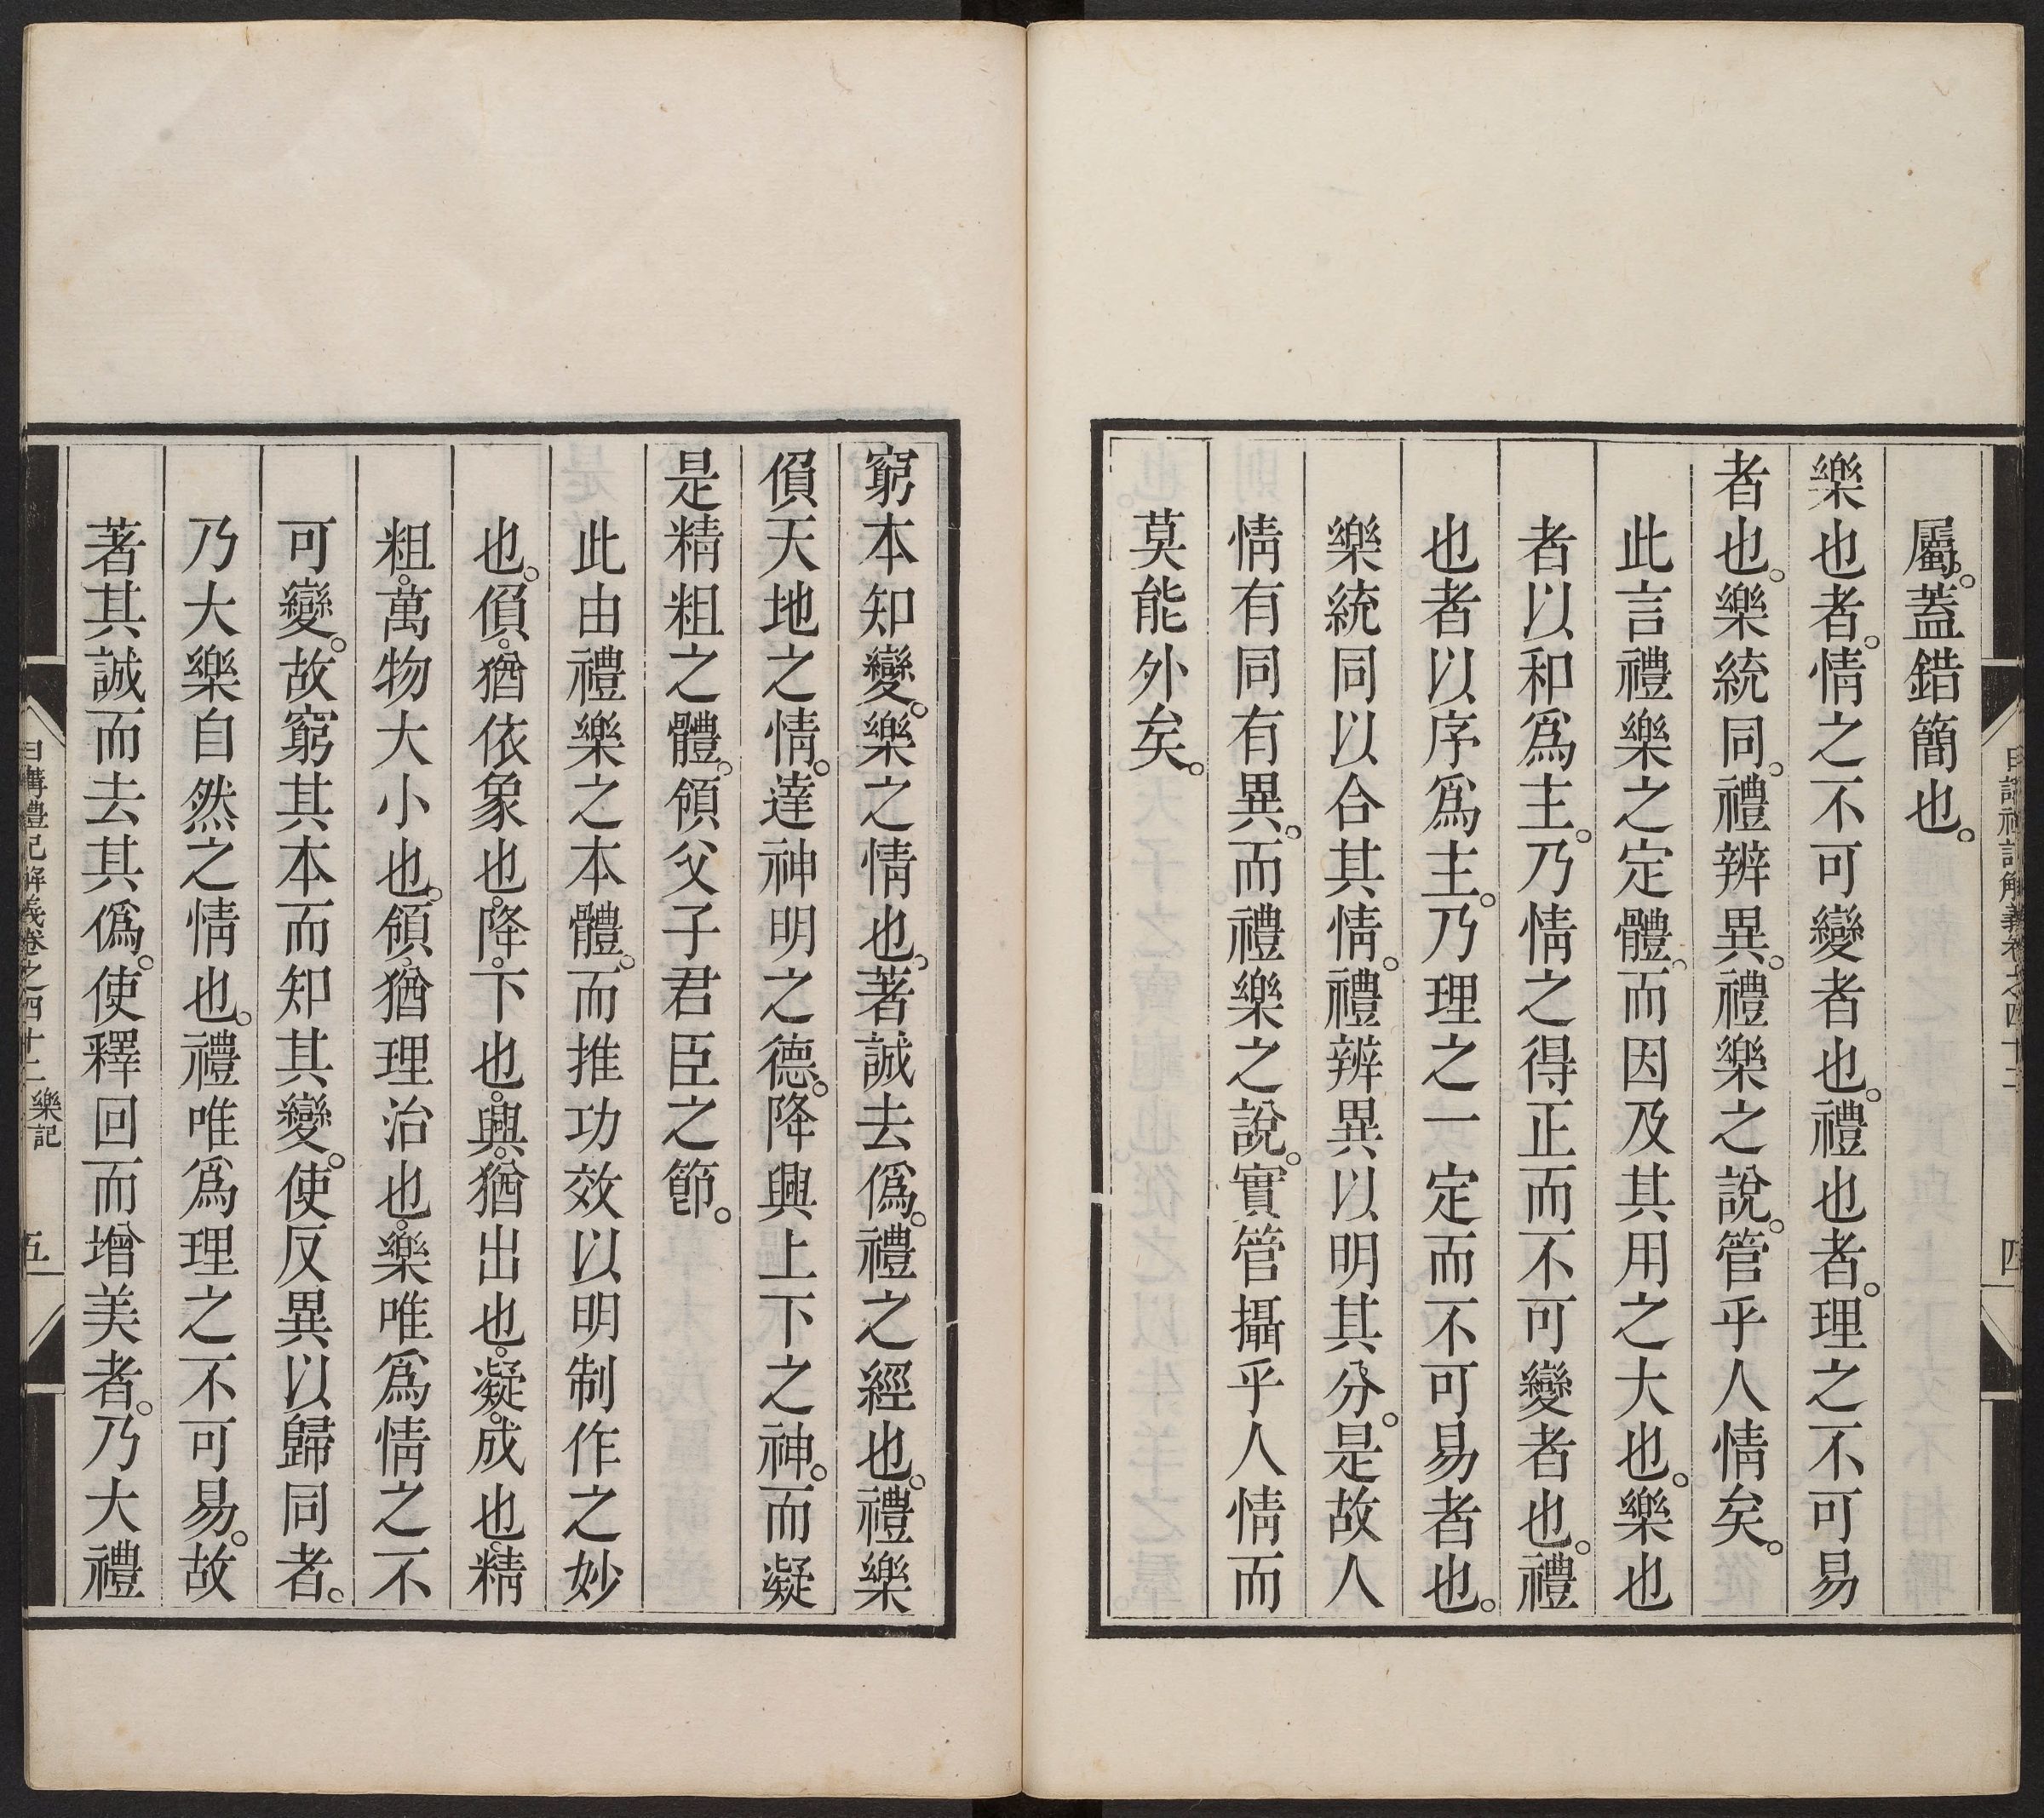 屬。蓋錯簡也。
樂也者。情之不可變者也。禮也者。理之不可易
者也。樂統同。禮辨異。禮樂之說。管乎人情矣。
此言禮樂之定體。而因及其用之大也。樂也
者以和爲主。乃情之得正而不可變者也。禮
也者以序爲主。乃理之一定而不可易者也。
樂統同以合其情。禮辨異以明其分。是故人
情有同有異。而禮樂之說。實管攝乎人情而
莫能外矣。
窮本知變。樂之情也。著誠去僞。禮之經也。禮樂
偩天地之情。達神明之德。降興上下之神。而凝
是精粗之體。領父子君臣之節。
此由禮樂之本體。而推功效以明制作之妙
也。偩。猶依象也。降。下也。興。猶出也。凝。成也。精
粗。萬物大小也。領。猶理治也。樂唯爲情之不
可變。故窮其本而知其變。使反異以歸同者。
乃大樂自然之情也。禮唯爲理之不可易。故
著其誠而去其僞。使釋回而增美者。乃大禮
日講禮記解義卷之四十二 樂記 五